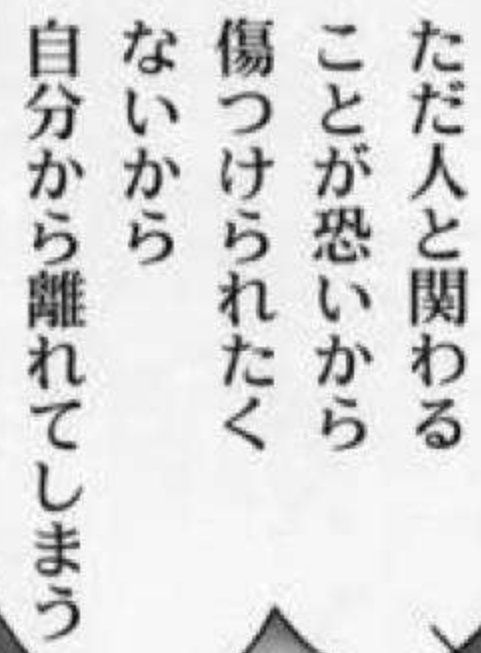 ただ人と関わる
ことが恐いから
傷つけられたく
ないから
自分から離れてしまう